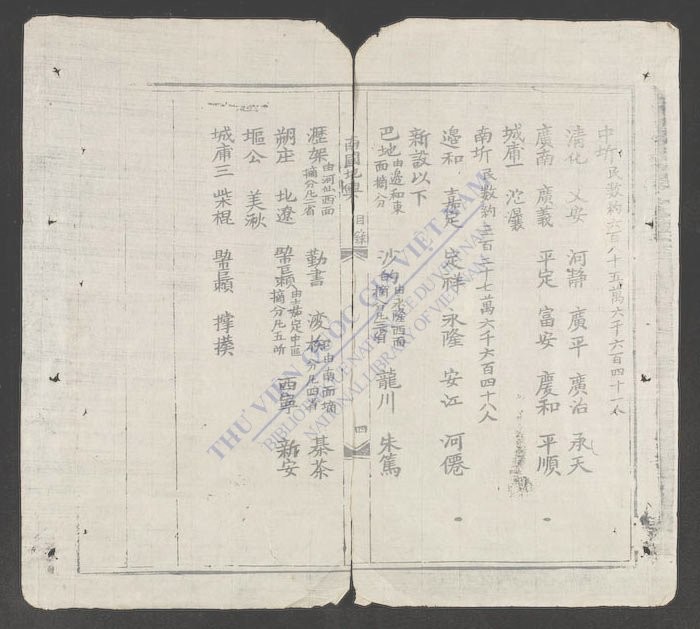 中圻民数約六百八十五萬六千六百四十一人
清化 乂安 河靜 廣平 廣治 承天
廣南 廣義 平定 富安 慶和 平順
城庯一 沱灢
南圻民数約二百二十七萬六千六百四十八人
邊和 嘉定 定祥 永隆 安江 河僊
新設以下
巴地由邊和東面摘分 沙的由永隆西面摘分凡二省 龍川 朱篤
南國地輿 目錄 四
瀝架由河仙西面摘分凡二省 勤書 由南面摘分凡四省 棊茶
朔庄 北遼 由嘉定中區摘分凡五所 西寧 新安
塸公 美秋
城庯三 柴棍
THƯ VIỆN QUỐC GIA VIỆT NAM
BIBLIOTHÈQUE NATIONALE DU VIETNAM
NATIONAL LIBRARY OF VIETNAM